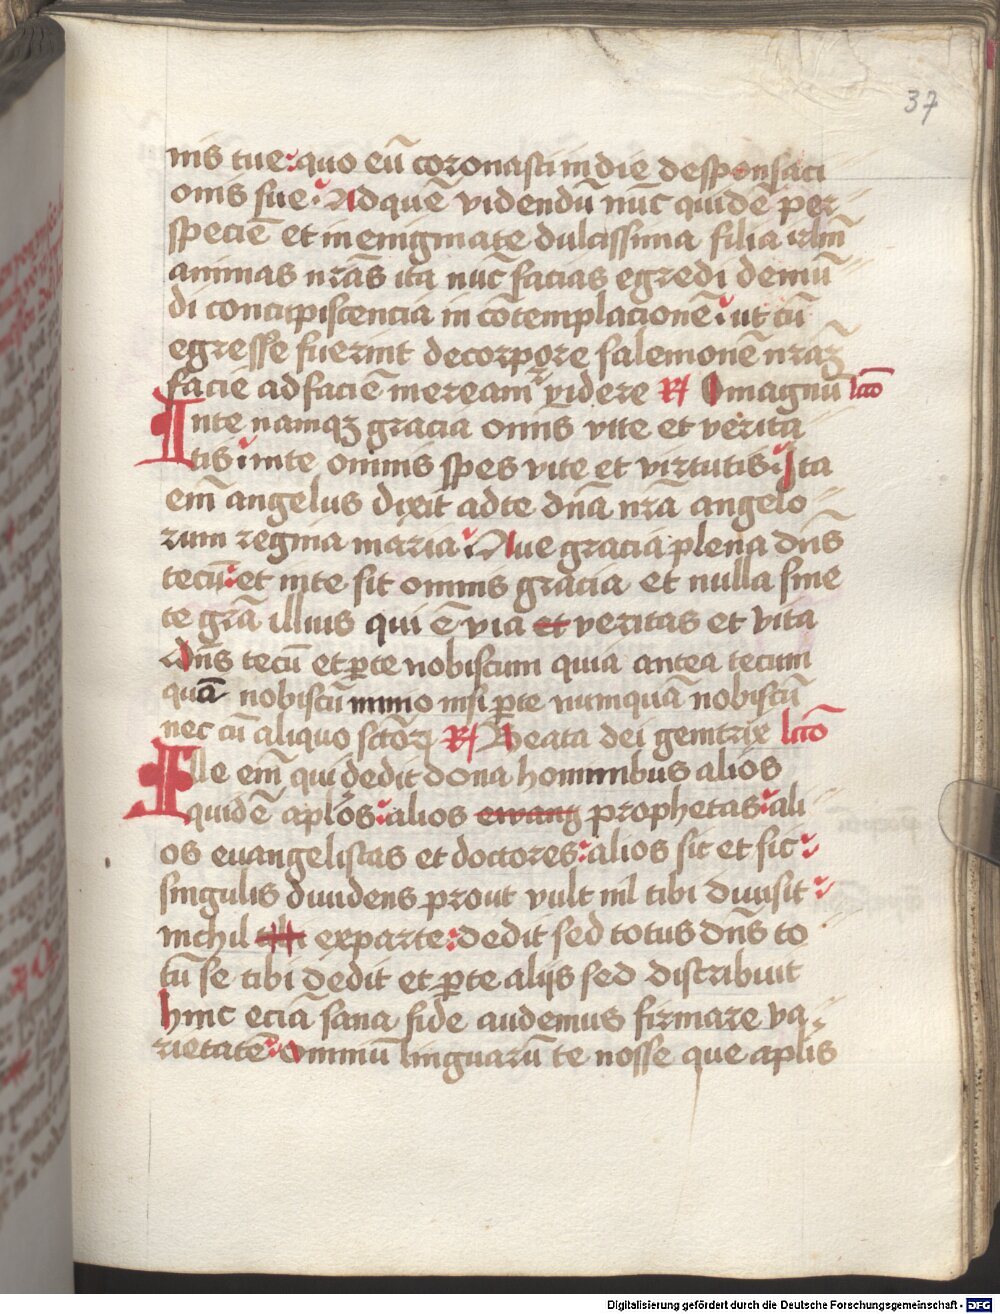 37
nis tue quo eu̅ coronasti in die desponsaci
onis sue. Ad que̅ videndu̅ nu̅c quide̅ per
specie̅ et in enigmate dulcissima filia irl̅m
animas nr̅as ita nu̅c facias egredi de mu̅
di concupiscencia in co̅templacione̅ ut cu̅
egresse fuerint de corpore salemone̅ nr̅aꝫ
facie̅ ad facie̅ mereamr videre R/ O magnu̅ lc̅io
In te namqꝫ gracia om̅is vite et verita
tis in te omnis spes vite et virtutis Ita
em̅ angelus dixit ad te dn̅a nr̅a angelo
rum regina maria Aue gracia plena dn̅s
tecu̅ et in te sit omnis gracia et nulla sine
te gr̅a illius qui e̅ via et veritas et vita
Dn̅s tecu̅ et ꝑ te nobiscum quia antea tecum
qua̅ nobiscu̅ immo nisi ꝑ te numqua̅ nobiscu̅
nec cu̅ aliquo sc̅toꝝ R/ Beata dei genitrix lc̅io
Ille em̅ qui dedit dona hominibus alios
quide̅ apl̅os alios ewang prophetas ali
os euangelistas et doctores alios sic et sic
singulis diuidens prout vult nil tibi diuisit
nichil tibi ex parte dedit sed totus dn̅s to
tu̅ se tibi dedit et ꝑ te alijs sed distribuit
hinc ecia̅ sana fide audemus firmare va
rietate̅ omniu̅ linguaru̅ te nosse que aplis
Digitalisierung gefördert durch die Deutsche Forschungsgemeinschaft - DFG